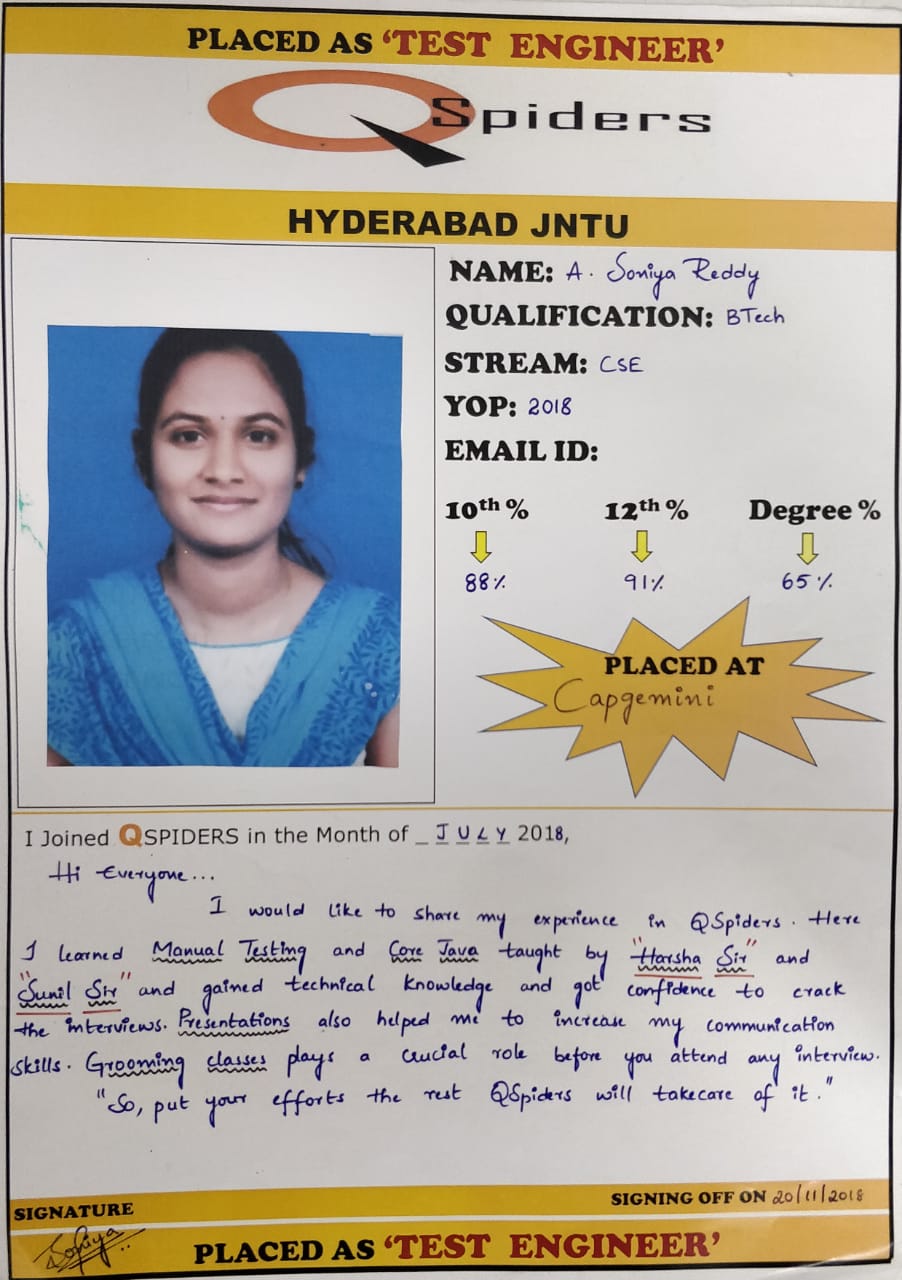 PLACED AS ‘TEST ENGINEER’
QSpiders
HYDERABAD JNTU
NAME: A. Soniya Reddy
QUALIFICATION: BTech
STREAM: CSE
YOP: 2018
EMAIL ID:
10th % 12th % Degree %
88% 91% 65%
PLACED AT
Capgemini
I Joined QSPIDERS in the Month of _ J U L Y 2018,
Hi Everyone...
I would like to share my experience in QSpiders. Here
I learned Manual Testing and Core Java taught by "Harsha Sir" and
"Sunil Sir" and gained technical knowledge and got confidence to crack
the interviews. Presentations also helped me to increase my communication
skills. Grooming classes plays a crucial role before you attend any interview.
"So, put your efforts the rest QSpiders will takecare of it."
SIGNATURE
SIGNING OFF ON 20/11/2018
Soniya
PLACED AS ‘TEST ENGINEER’